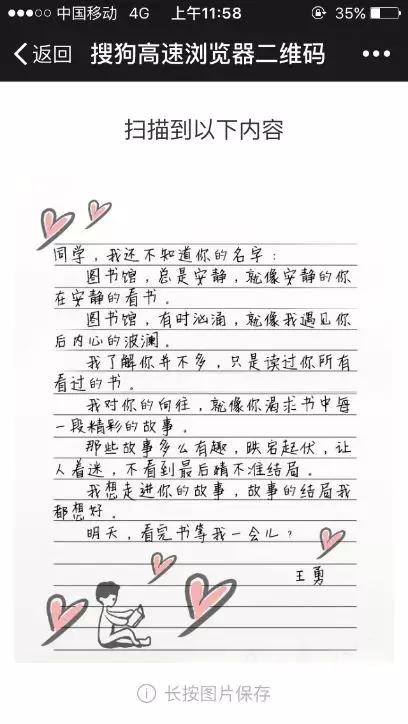 中国移动 4G 上午11:58 35%
返回 搜狗高速浏览器二维码
扫描到以下内容
同学，我还不知道你的名字：
图书馆，总是安静，就像安静的你
在安静的看书。
图书馆，有时汹涌，就像我遇见你
后内心的波澜。
我了解你并不多，只是读过你所有
看过的书。
我对你的向往，就像你渴求书中每
一段精彩的故事。
那些故事多么有趣，跌宕起伏，让
人着迷，不看到最后猜不准结局。
我想走进你的故事，故事的结局我
都想好。
明天，看完书等我一会儿？
王勇
长按图片保存